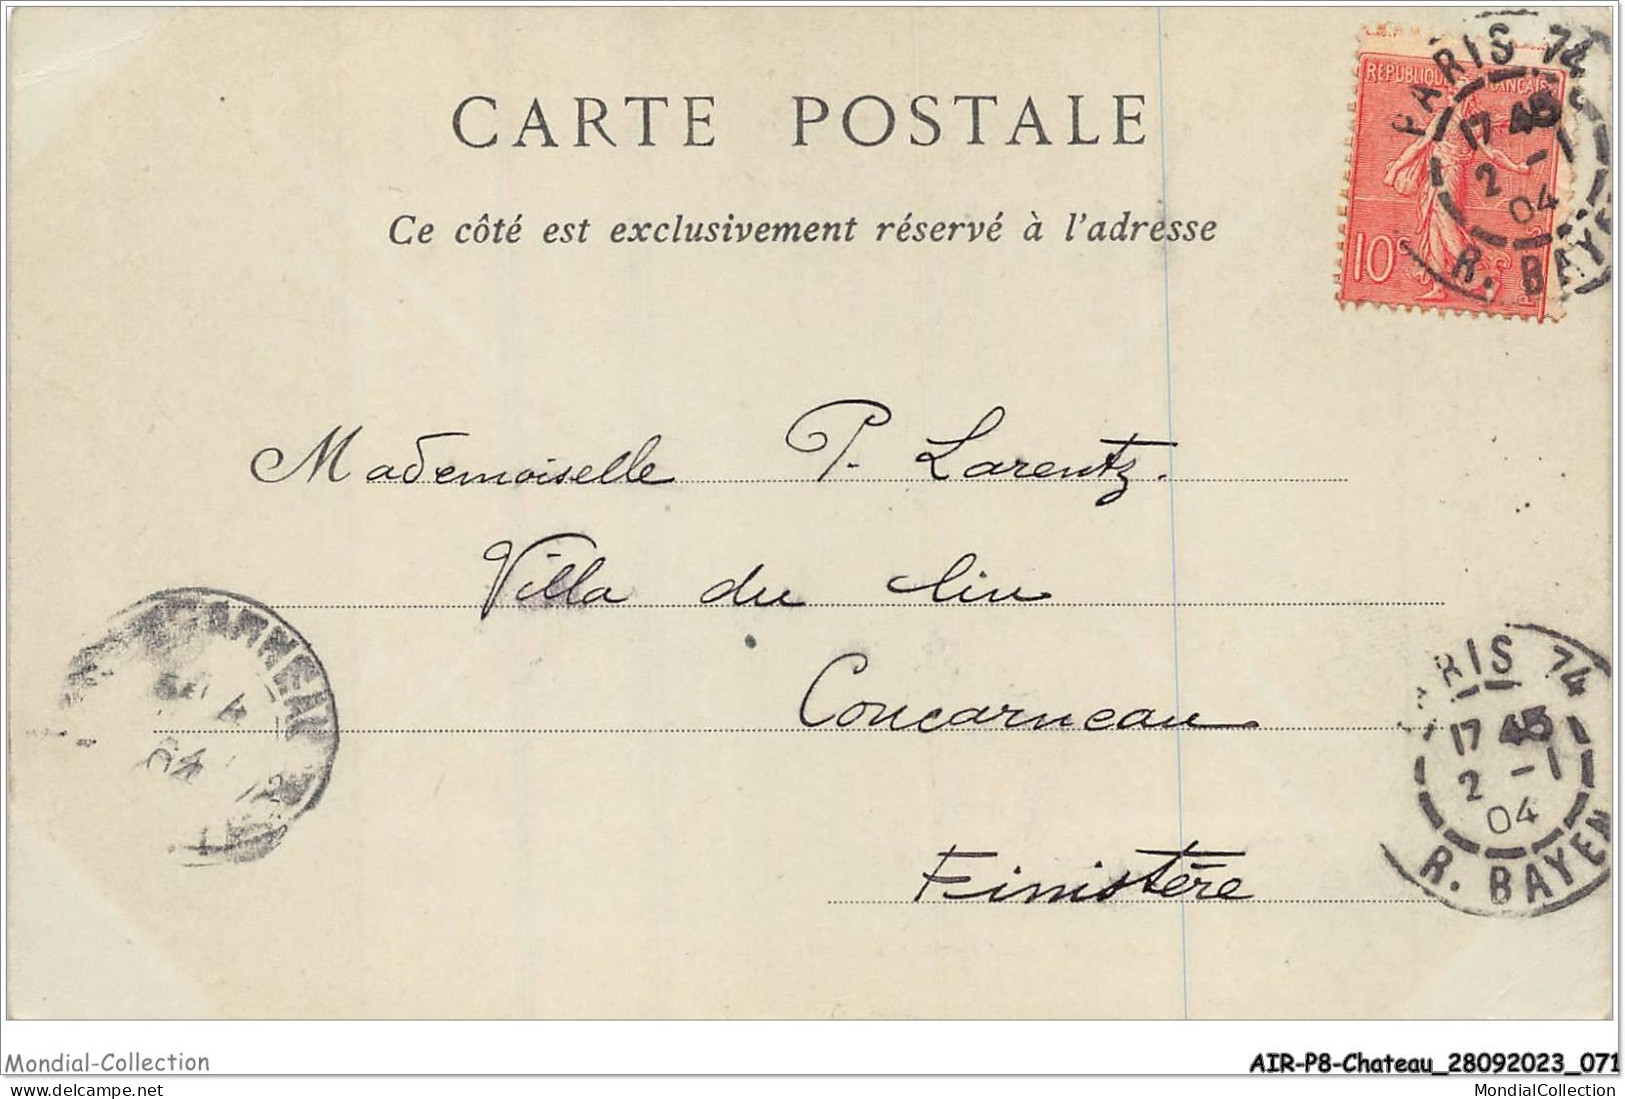 CARTE POSTALE
Ce côté est exclusivement réservé à l'adresse
REPUBLIQUE FRANÇAISE
10c
PARIS 74
17 45
2 -1
04
R. BAYEN
Mademoiselle P. Larentz.
Villa du lin
Concarneau
Finistère
CONCARNEAU
04
PARIS 74
17 45
2 -1
04
R. BAYEN
Mondial-Collection
AIR-P8-Chateau_28092023_071
delcampe.net
MondialCollection